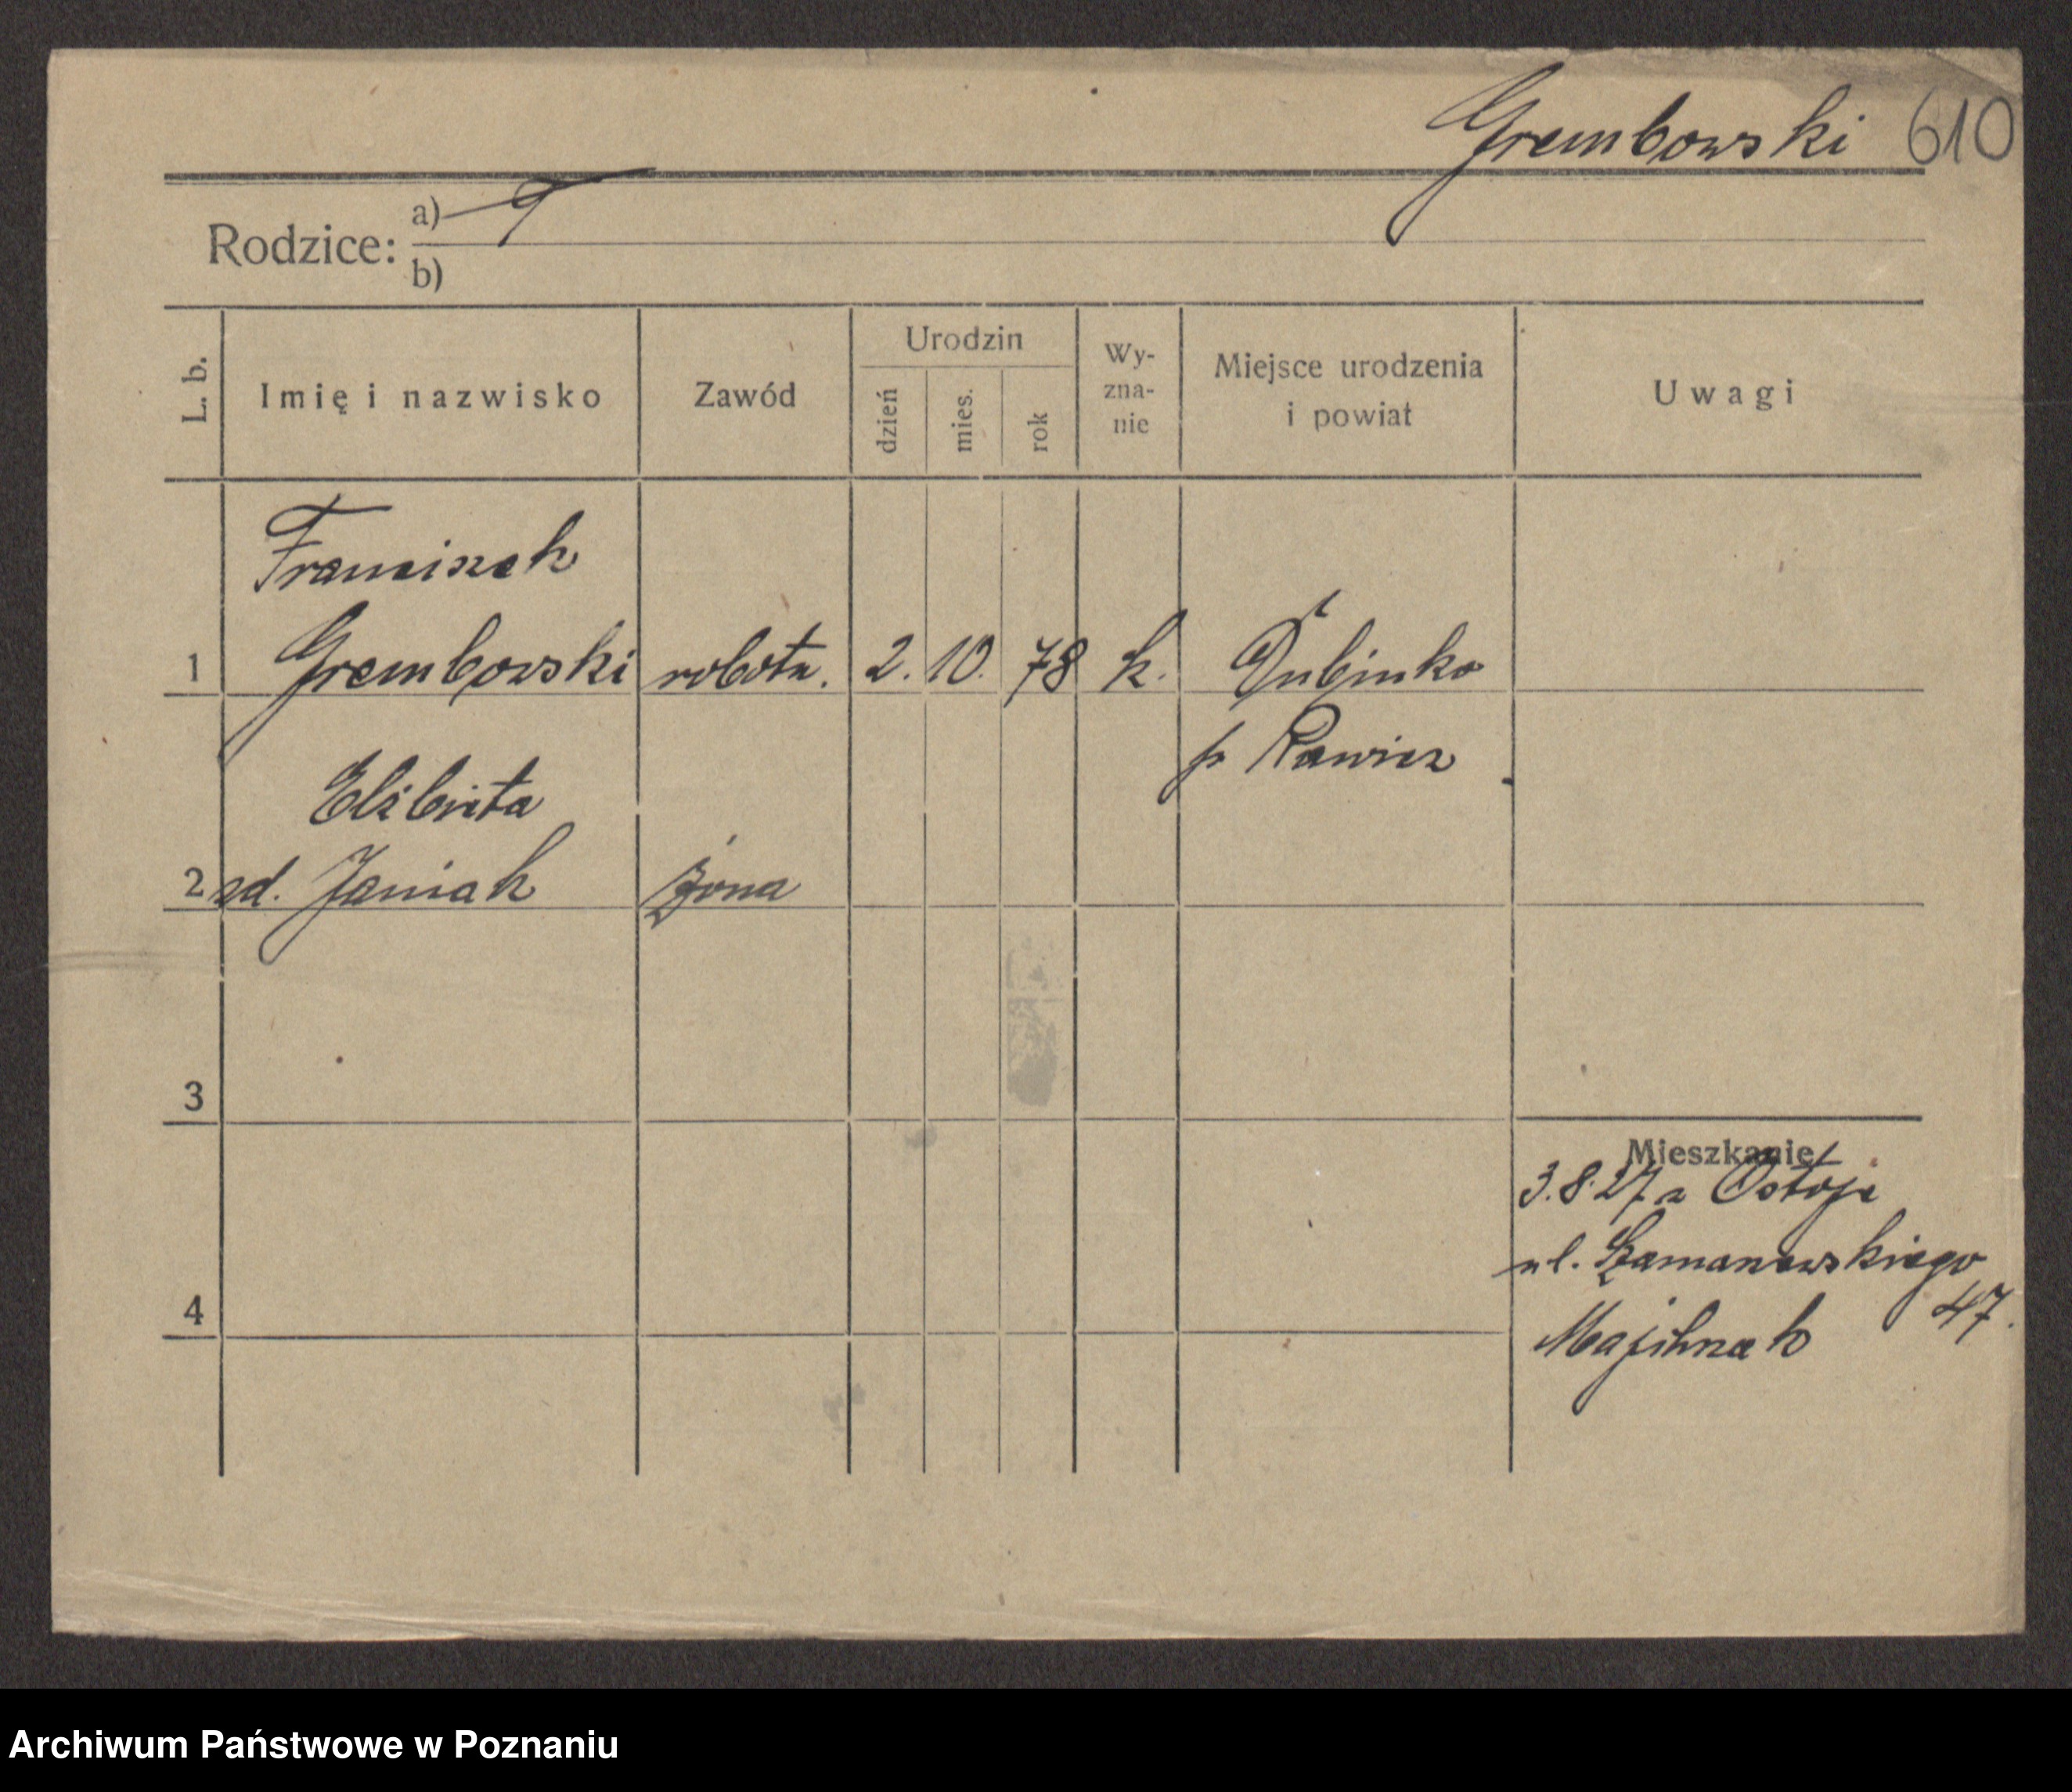 Grembowski 610
Rodzice: a)
b)
L. b.
Imię i nazwisko
Zawód
Urodzin
dzień
mies.
rok
Wy-
zna-
nie
Miejsce urodzenia
i powiat
Uwagi
Franciszek
1 Grembowski robotn. 2. 10. 78 k. Dubinko
p Rawicz
Elżbieta
2 zd. Janiak żona
3
Mieszkanie
3.8.27 z Ostoje
ul. Szamanowskiego
47.
4
Majchrzak
Archiwum Państwowe w Poznaniu